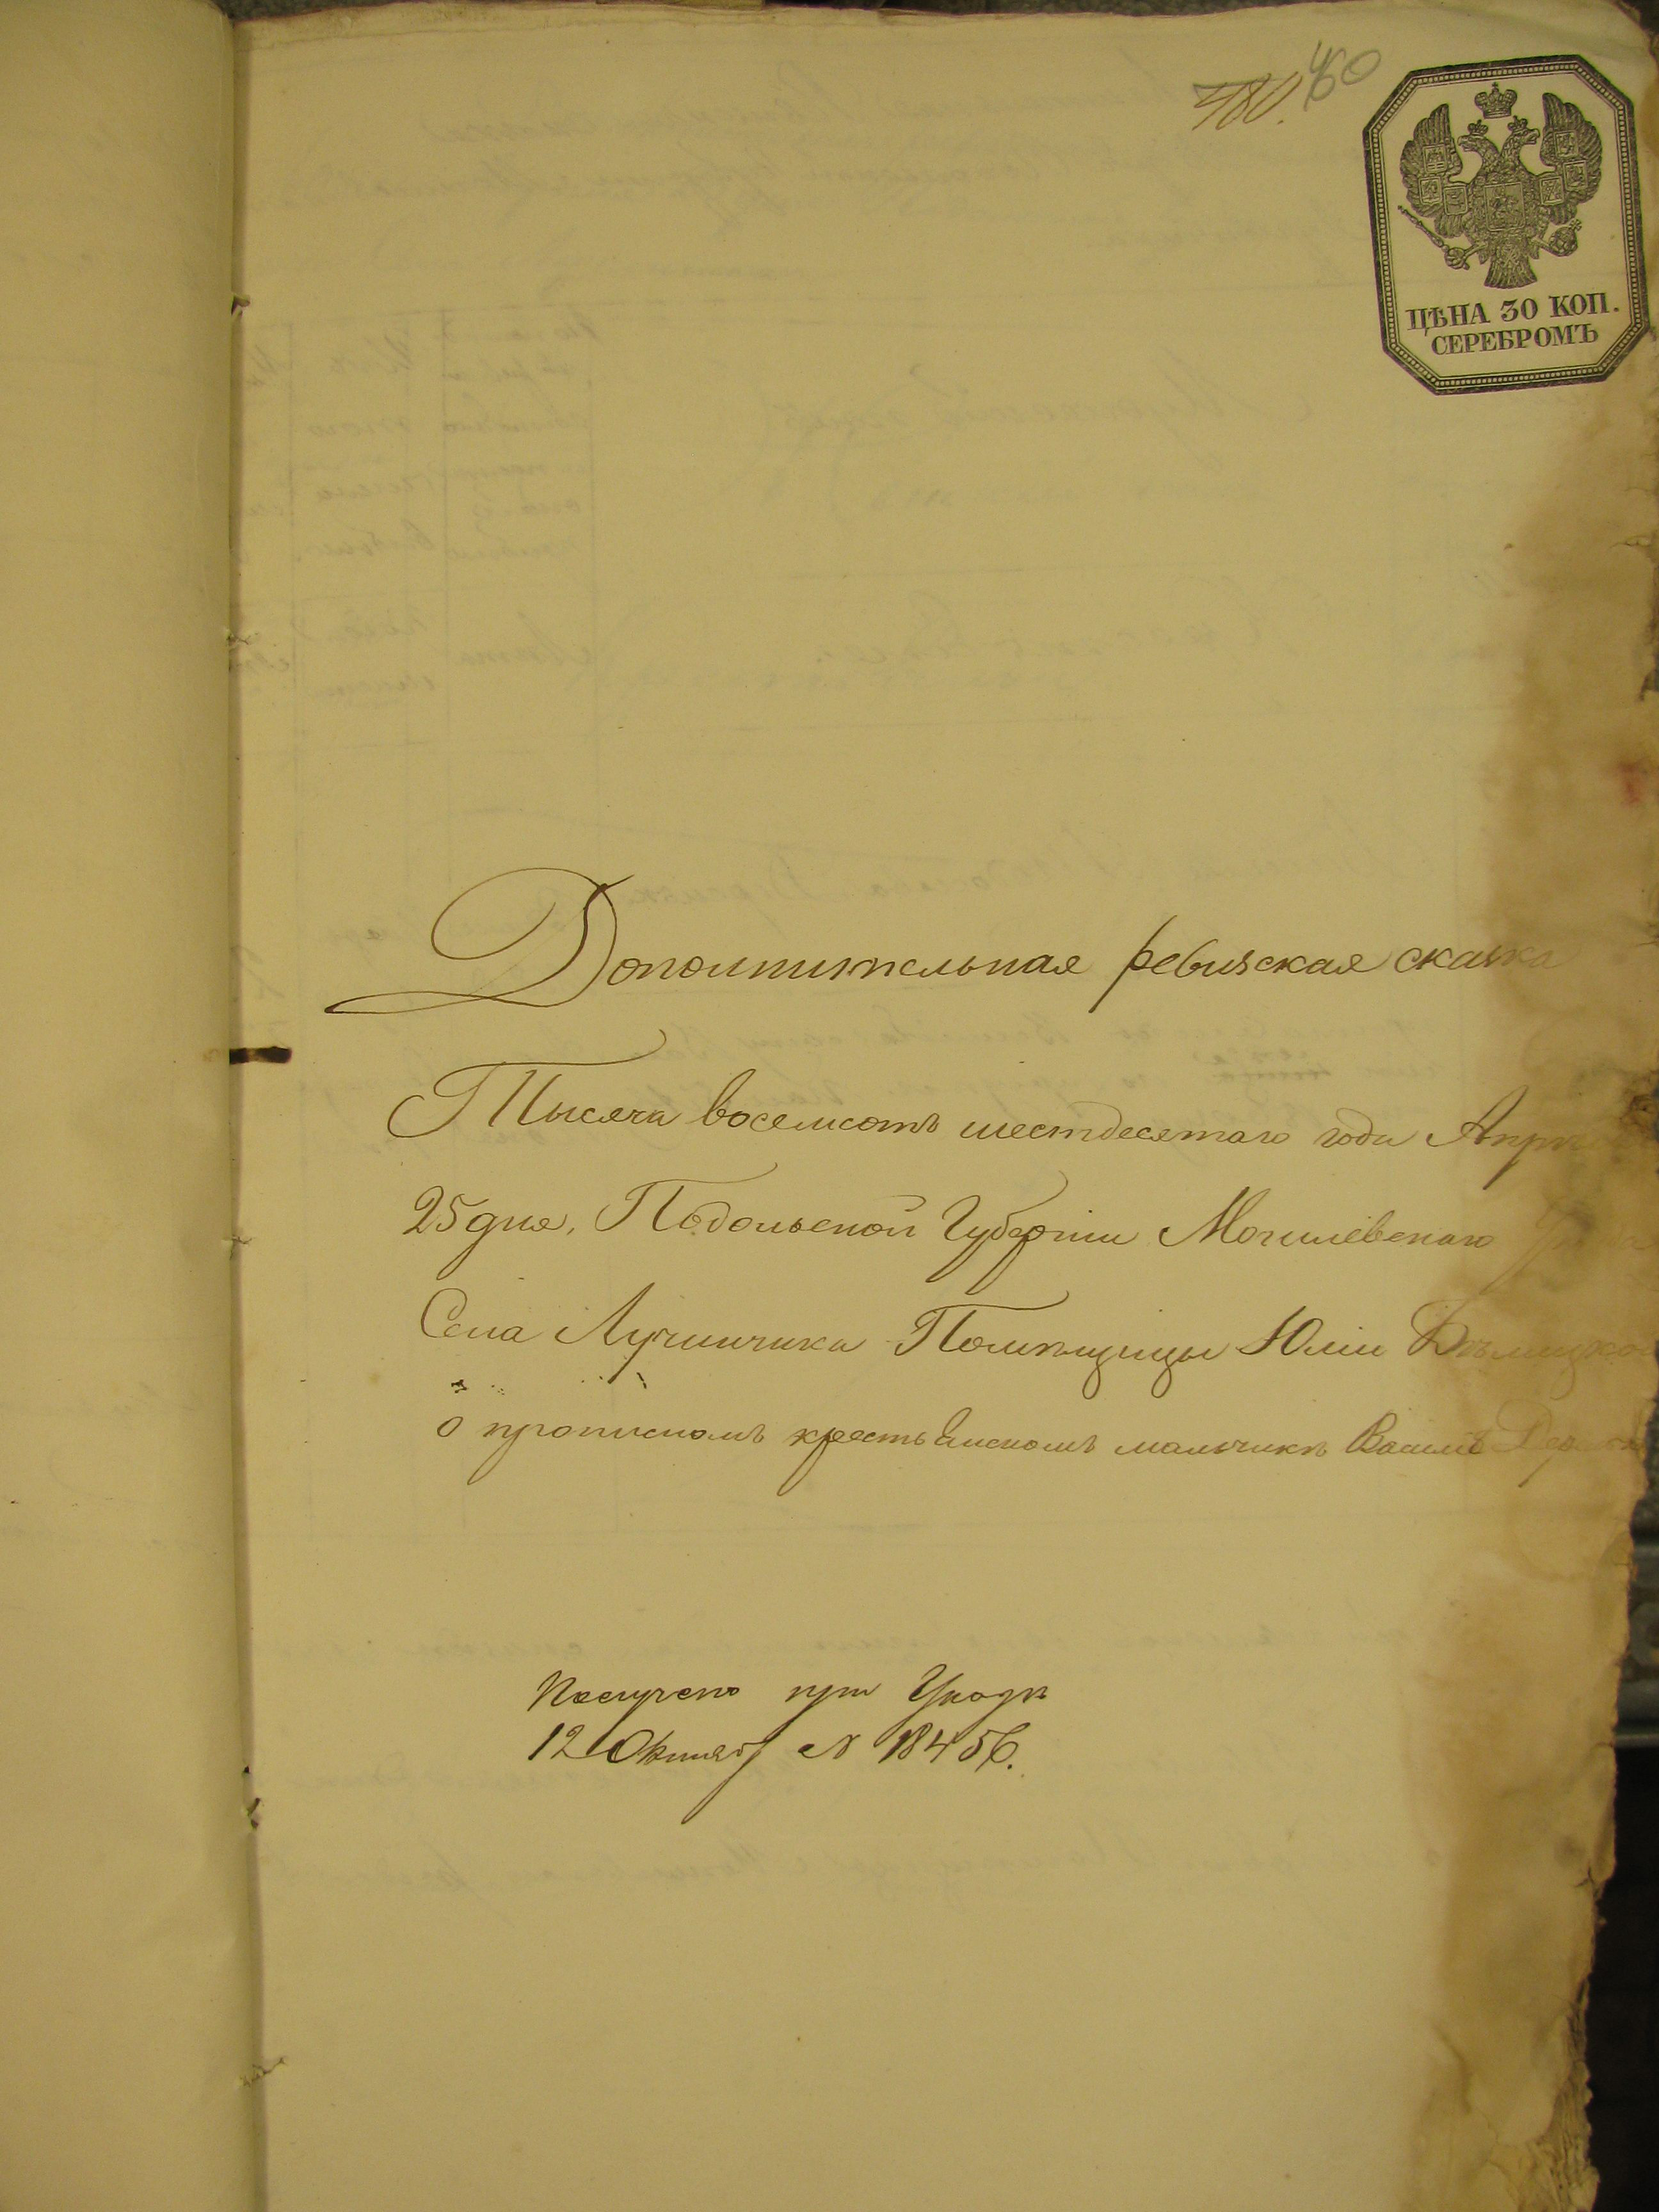 480. 460
ЦѢНА 30 КОП.
СЕРЕБРОМЪ
Дополнительная ревизская сказка
Тысяча восемсотъ шестдесятаго года Апрѣля
25 дня, Подольской Губерніи Могилевскаго Уѣзда
Села Лучинчика Помѣщицы Юліи
о прописномъ крестьянскомъ мальчикѣ Василіѣ
Получено при Указѣ
12 Октяб № 18456.